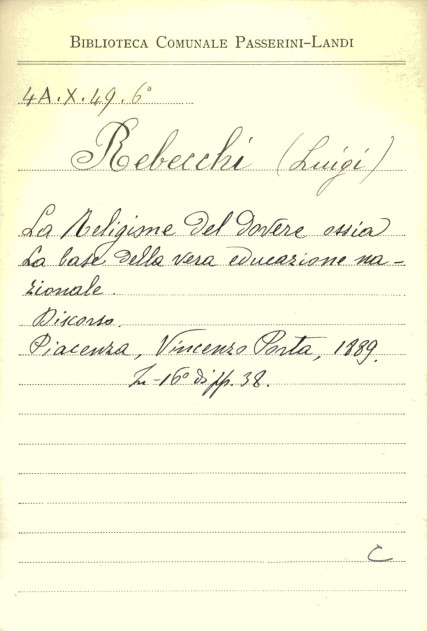 BIBLIOTECA COMUNALE PASSERINI-LANDI
4A.X.49.6°
Rebecchi (Luigi)
La Religione del dovere ossia
La base della vera educazione na-
zionale.
Discorso.
Piacenza, Vincenzo Porta, 1889.
In-16° di pp. 38.
C